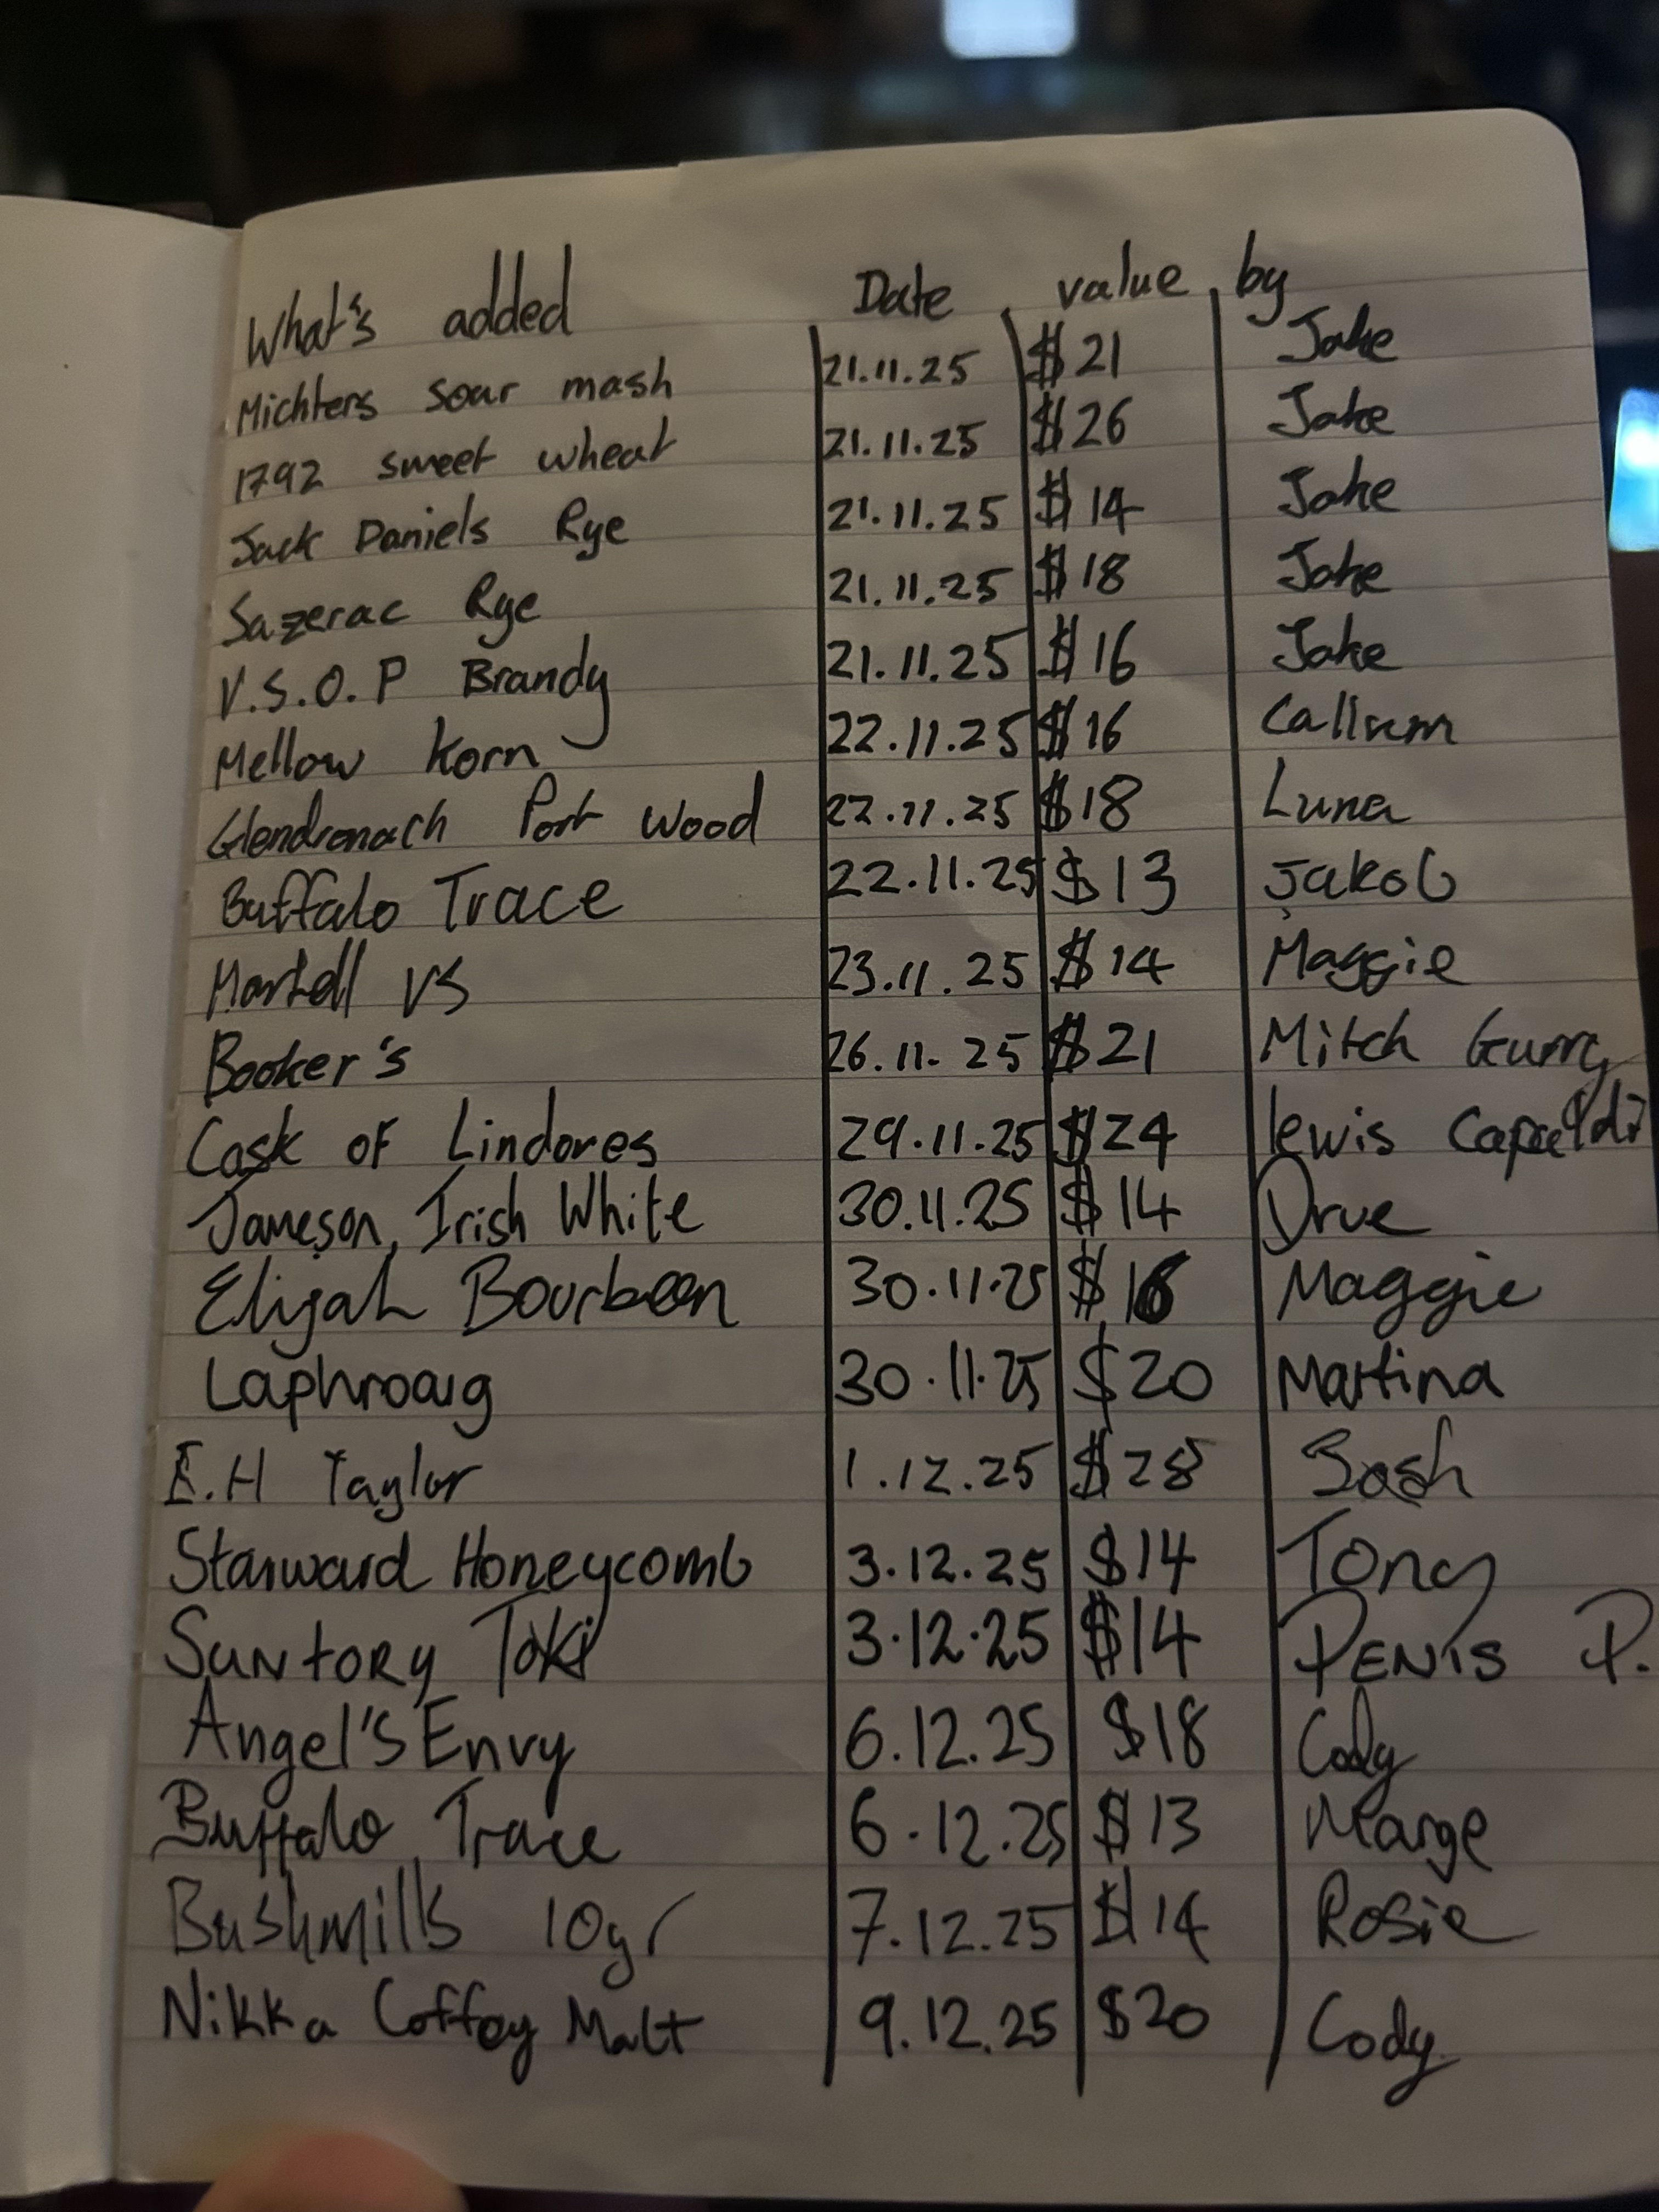 What's added Date value by
Michters Sour mash 21.11.25 $21 Jake
1792 sweet wheat 21.11.25 $26 Jake
Jack Daniels Rye 21.11.25 $14 Jake
Sazerac Rye 21.11.25 $18 Jake
V.S.O.P Brandy 21.11.25 $16 Jake
Mellow Korn 22.11.25 $16 Callum
Glendronach Port Wood 22.11.25 $18 Luna
Buffalo Trace 22.11.25 $13 Jakob
Martell VS 23.11.25 $14 Maggie
Booker's 26.11.25 $21 Mitch
Cask of Lindores 29.11.25 $24 lewis Capaldi
Jameson, Irish White 30.11.25 $14 Drue
Elijah Bourbon 30.11.25 $16 Maggie
Laphroaig 30.11.25 $20 Martina
E.H Taylor 1.12.25 $28
Starward Honeycomb 3.12.25 $14 Tony
Suntory Toki 3.12.25 $14 PENIS P.
Angel's Envy 6.12.25 $18 Cody
Buffalo Trace 6.12.25 $13 Marge
Bushmills 10yr 7.12.25 $14 Rosie
Nikka Coffey Malt 9.12.25 $20 Cody